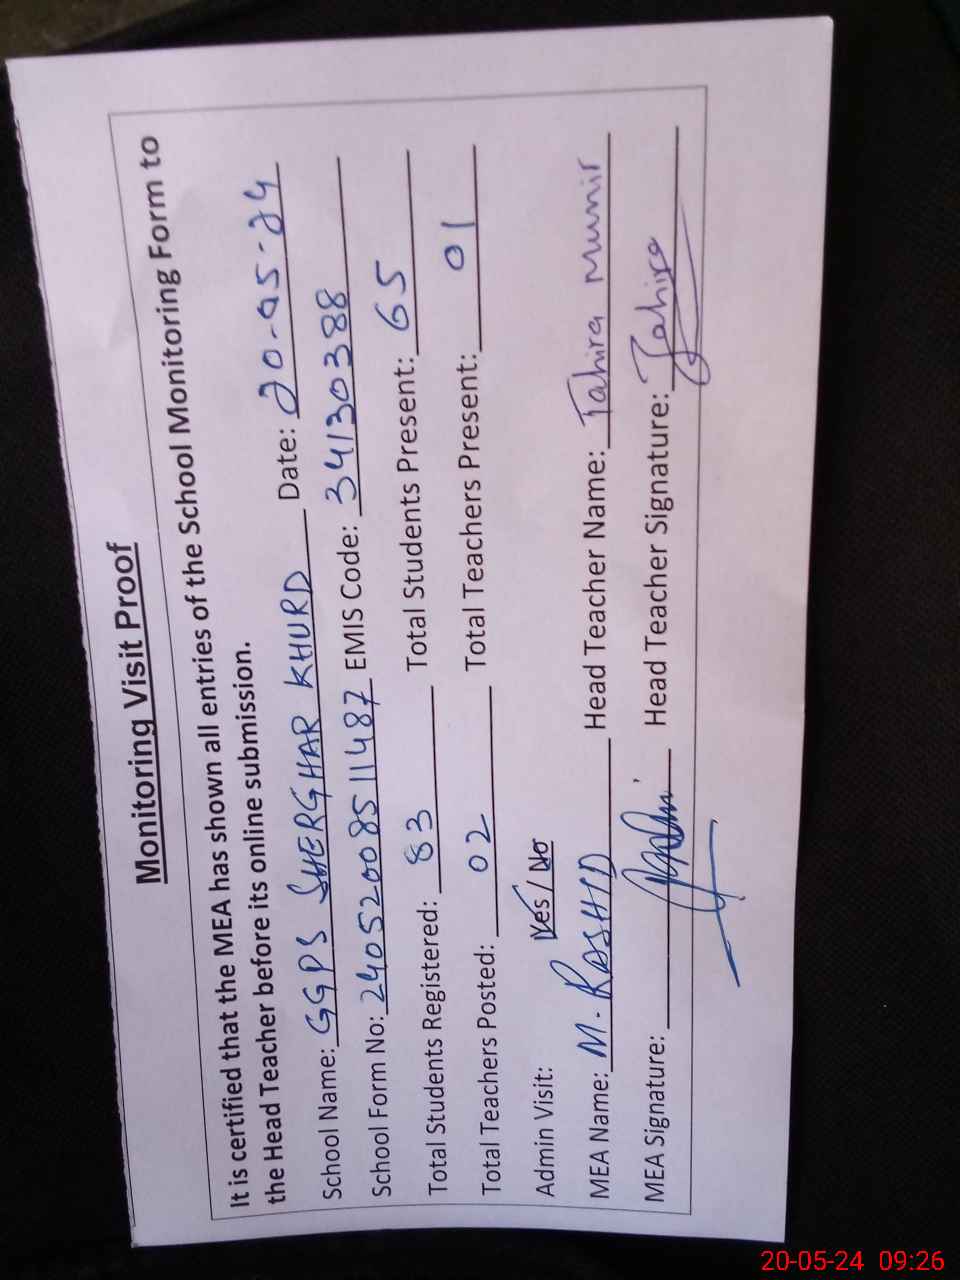 Monitoring Visit Proof
It is certified that the MEA has shown all entries of the School Monitoring Form to
the Head Teacher before its online submission.
School Name: GGPS SHERGHAR KHURD Date: 20-05-24
School Form No: 24052008511487 EMIS Code: 34130388
Total Students Registered: 83 Total Students Present: 65
Total Teachers Posted: 02 Total Teachers Present: 01
Admin Visit: Yes / No
MEA Name: M. RASHID Head Teacher Name: Tahira Munir
MEA Signature: Head Teacher Signature: Tahira
20-05-24 09:26